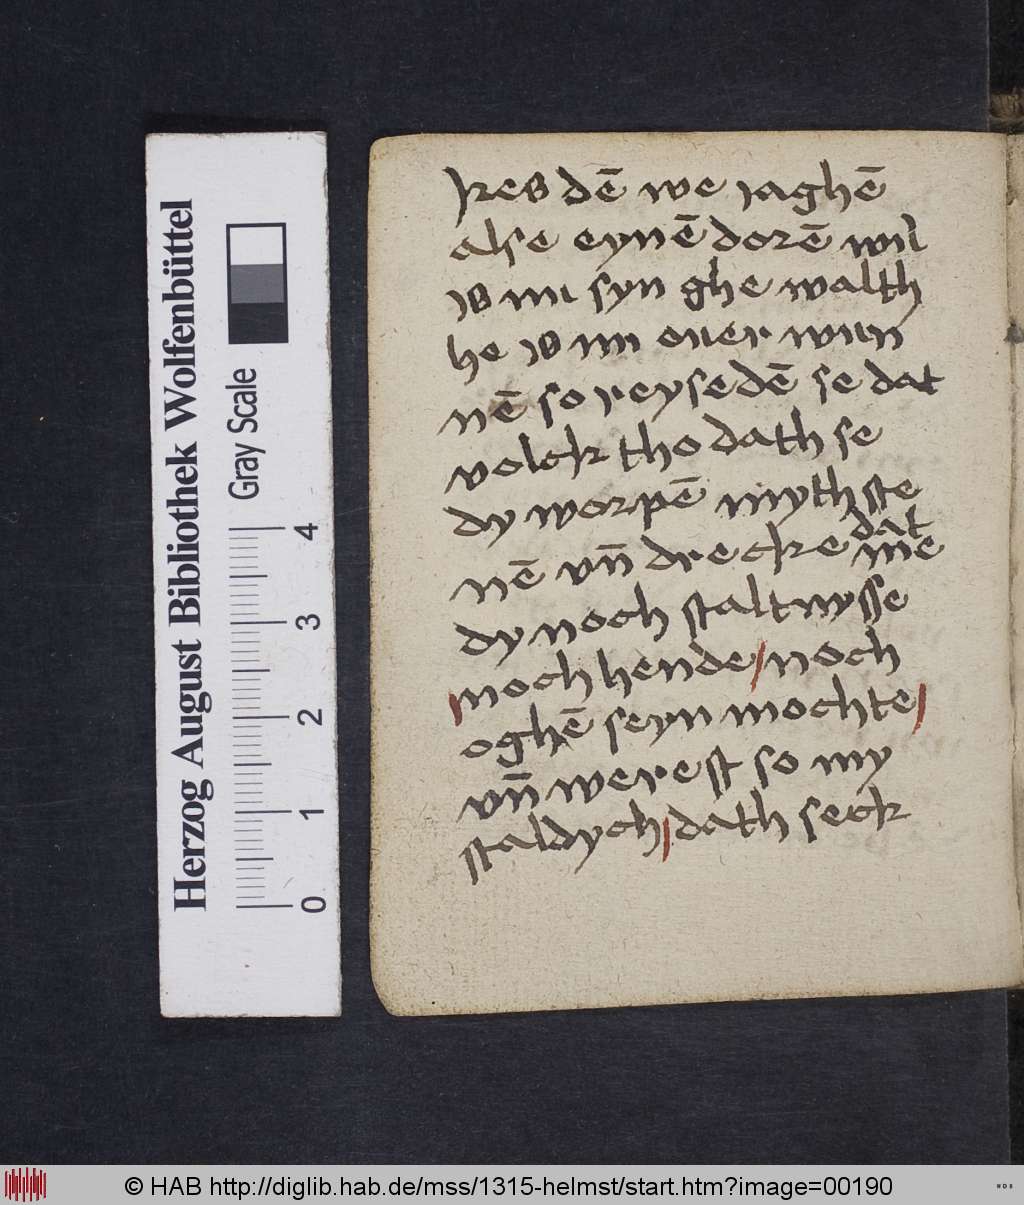 Herzog August Bibliothek Wolfenbüttel
Gray Scale
0 1 2 3 4
kres dē we iaghē
alse eynē dorē wil
is nu syn ghe walth
he is nu ouer wun
nē so reysedē se dat
volck tho dath se
dy worpē myth ste
nē vn̄ drecke dat mē
dy noch staltnysse
noch hende noch
oghē seyn mochte
vn̄ werest so my
staldych dath seck
© HAB http://diglib.hab.de/mss/1315-helmst/start.htm?image=00190